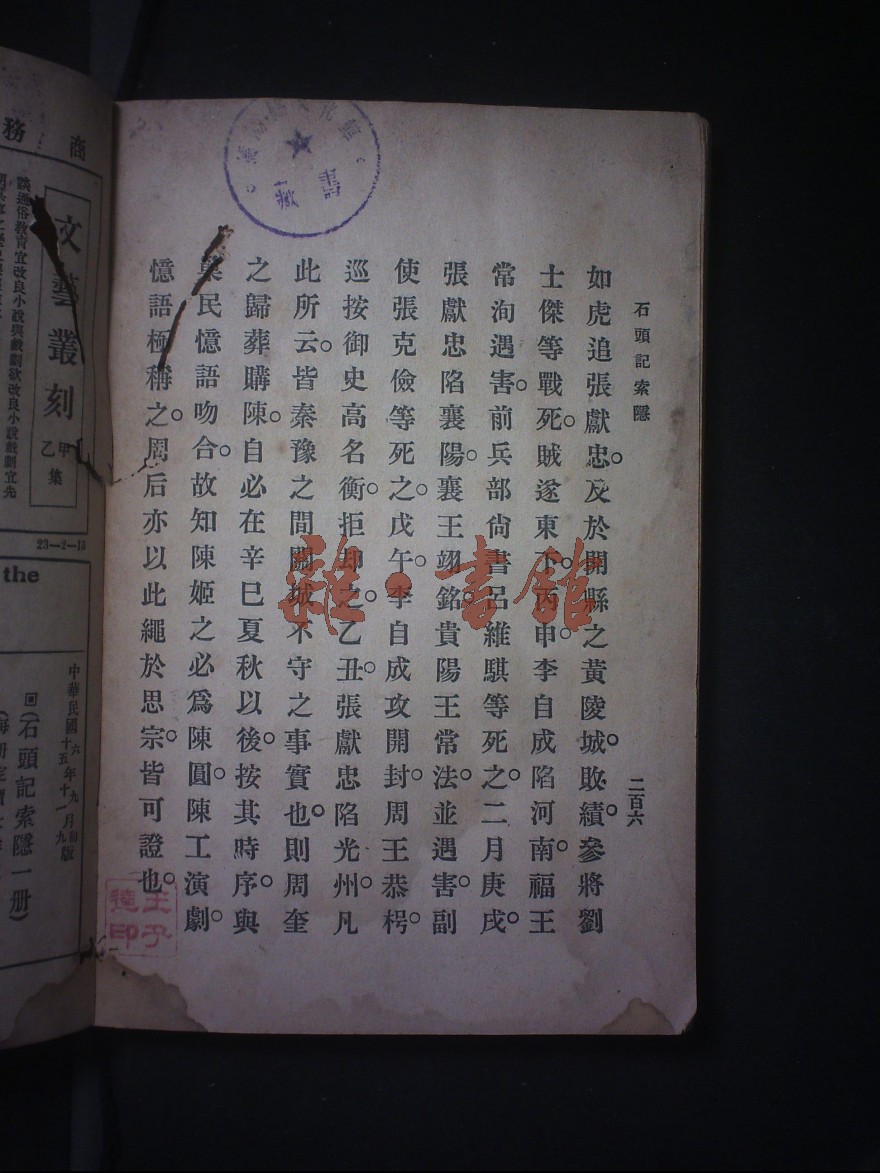 石頭記索隱
二百六
如虎追張獻忠。及於開縣之黃陵城。敗績。參將劉
士傑等戰死。賊遂東下。丙申。李自成陷河南。福王
常洵遇害。前兵部尙書呂維騏等死之。二月庚戌。
張獻忠陷襄陽。襄王翊銘。貴陽王常法。並遇害。副
使張克儉等死之。戊午。李自成攻開封。周王恭枵。
巡按御史高名衡。拒却之。乙丑。張獻忠陷光州。凡
此所云。皆秦豫之間關城不守之事實也。則周奎
之歸葬購陳。自必在辛巳夏秋以後。按其時序。與
民憶語吻合。故知陳姬之必爲陳圓。陳工演劇。
憶語極稱之。周后亦以此繩於思宗。皆可證也。
雜·書館
藏書
王子
印
商務
文藝叢刻
甲乙集
談通俗教育宜改良小說與戲劇欲改良小說戲劇宜先
23—2—15
the
中華民國六年九月初版
十五年十一月九
回(石頭記索隱一册)